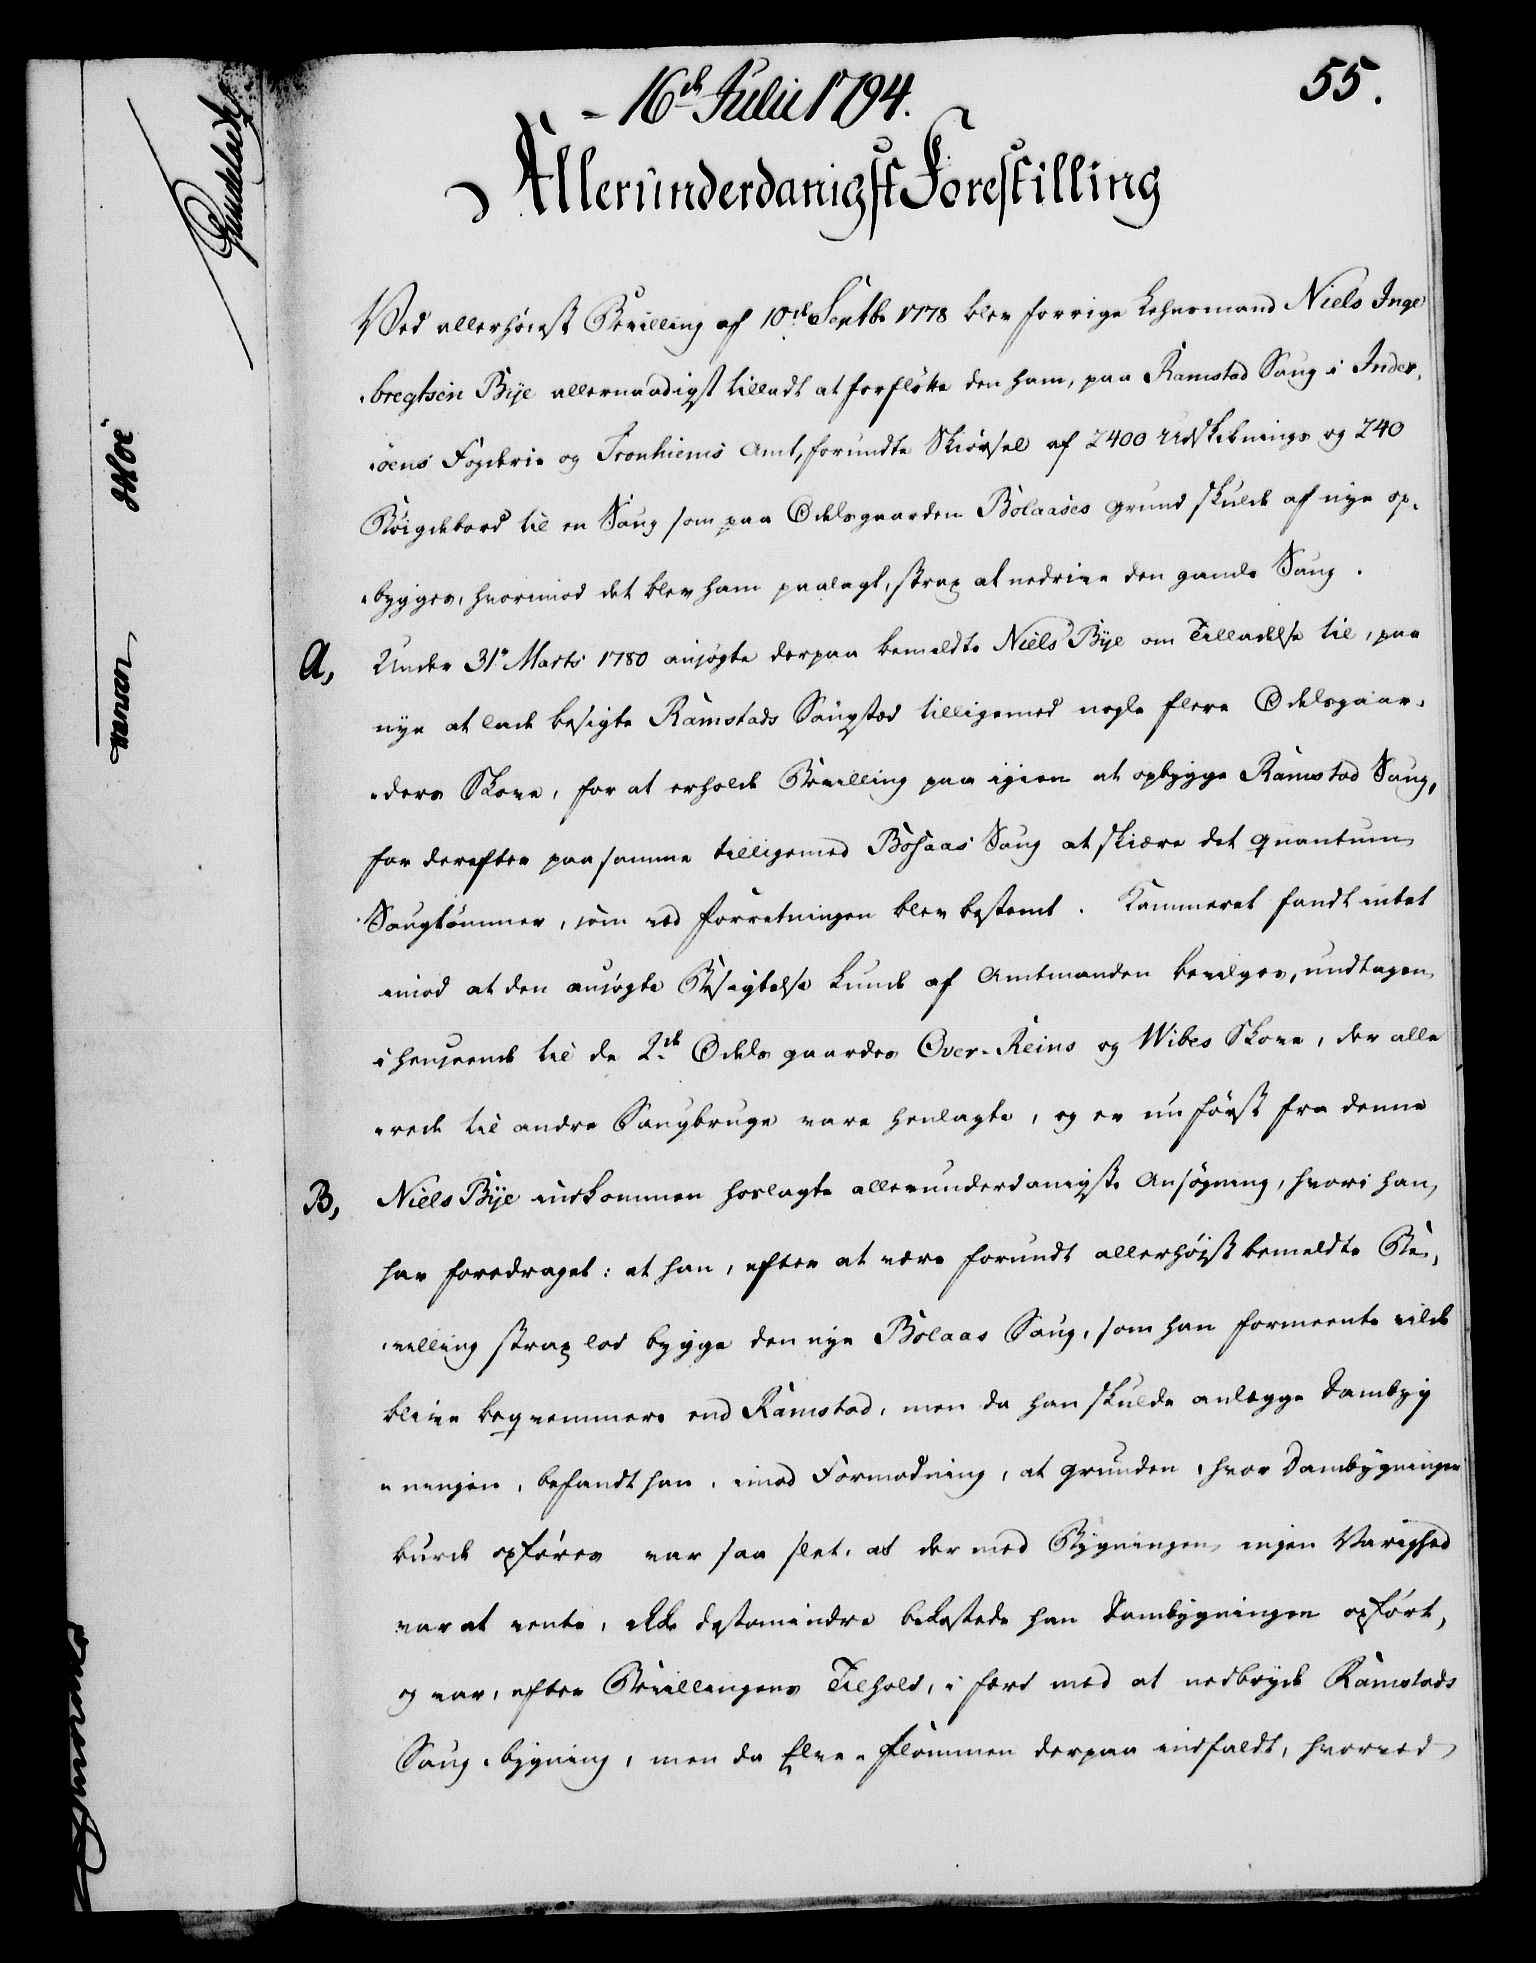 16de Julii 1794.
55.
Allerunderdanigst Forestilling
Ved allerhöiest Bevilling af 10de Septbr 1778 blev forrige Lehnsmand Niels Inge
bregtsen Bye allernaadigst tilladt at forflötte den ham, paa Ramstad Saug i Inder,
öens Fogderie og Tronhiems Amt, forundte Skiörsel af 2400 Udskibnings og 240
Böigdebord til en Saug som paa Odelsgaarden Bolaases Grund skulde af nye op,
bygges, hvorimod det blev ham paalagt, strax at nedrive den gamle Saug.
A, Under 31te Marts 1780 ansögte derpaa bemeldte Niels Bye om Tilladelse til, paa
nye at lade besigte Ramstads Saugstöd tilligemed nogle flere Odelsgaar,
ders Skove, for at erholde Bevilling paa igien at opbygge Ramstad Saug,
for derefter paa samme tilligemed Bolaas Saug at skiære det quantum
Saugtömmer, som ved Forretningen blev bestemt. Kammeret fandt intet
imod at den ansögte Besigtelse kunde af Amtmanden bevilges, undtagen
i henseende til de 2de Odels gaardes Over-Reins og Wibes Skove, der alle
rede til andre Saugbruge vare henlagte, og er nu först fra denne
B, Niels Bye indkommen hoslagte allerunderdanigste Ansögning, hvori han
har foredraget: at han, efter at være forundt allerhöist bemeldte Be,
villing strax lod bygge den nye Bolaas Saug, som han formeente vilde
blive beqvemmere end Ramstad, men da han skulde anlægge Dambyg
ningen, befandt han, imod Formodning, at Grunden, hvor Dambygningen
burde opföres var saa slet, at der med Bygningen ingen Varighed
var at vente, ikke destomindre bekostede han Dambygningen opfört,
og var, efter Bevillingens Tilhold, i færd med at nedbryde Ramstads
Saug-bygning, men da Elve-Flommen derpaa indfaldt, hvorved